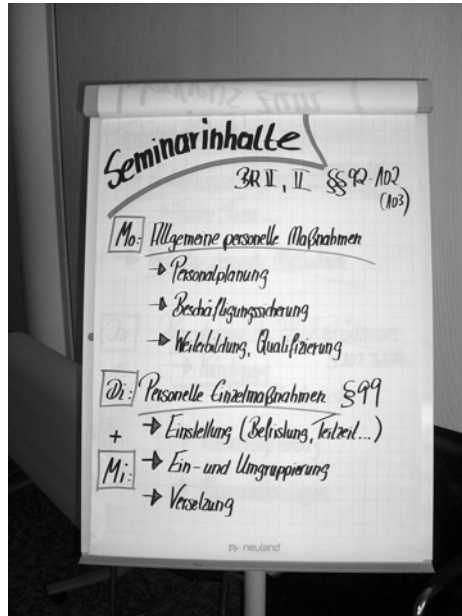 Seminarinhalte
BR II, II §§ 92-102
(103)
Mo: Allgemeine personelle Maßnahmen
→ Personalplanung
→ Beschäftigungssicherung
→ Weiterbildung, Qualifizierung
Di: Personelle Einzelmaßnahmen §99
+ → Einstellung (Befristung, Teilzeit...)
Mi: → Ein- und Umgruppierung
→ Versetzung
neuland